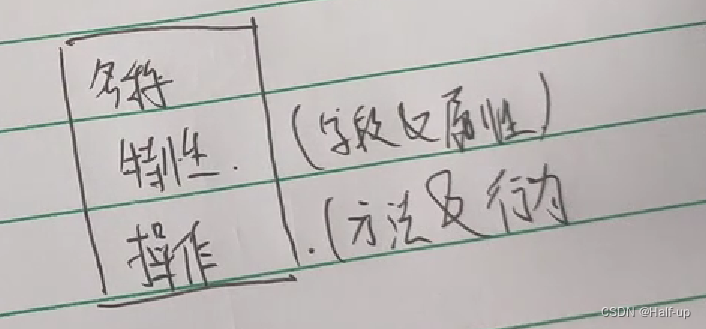 名称
特性. (字段及属性)
操作.(方法及行为
CSDN @Half-up